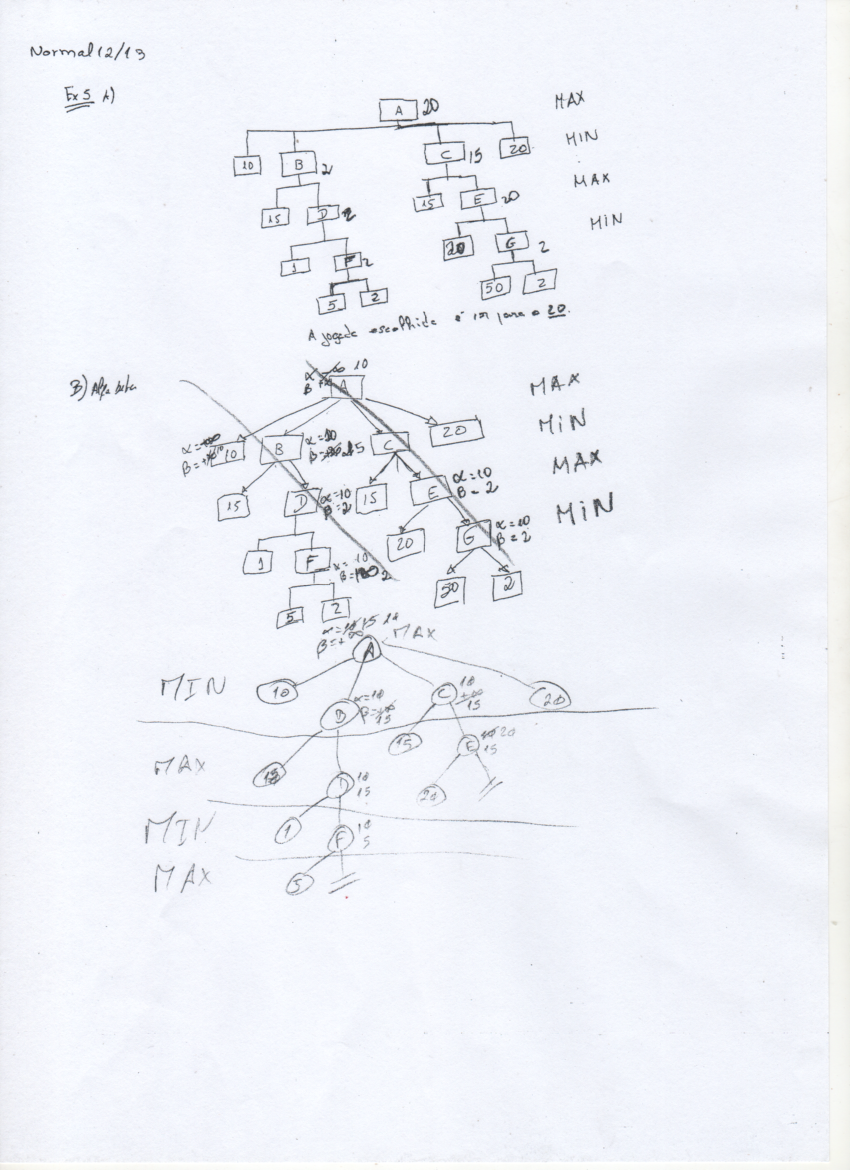 Normal 12/13
Ex 5 A)
A 20 MAX
10 B 2 C 15 20 MIN
15 D 2 15 E 20 MAX
1 F 2 20 G 2 MIN
5 2 50 2
A jogada escolhida é ir para o 20.
B) Alfa beta
α -∞ 10
β +∞ A MAX
10 B α=10 C 20 MIN
15 D α=10 β=2 15 E α=10 β=2 MAX
1 F α=10 2 20 G α=10 β=2 MIN
5 2 50 2
α=10 15
β=+∞ A MAX
MIN 10 B α=10 β=+∞ 15 C 10 +∞ 15 20
MAX 15 D 10 15 15 E 10 20 15
MIN 1 F 10 5 20
MAX 5